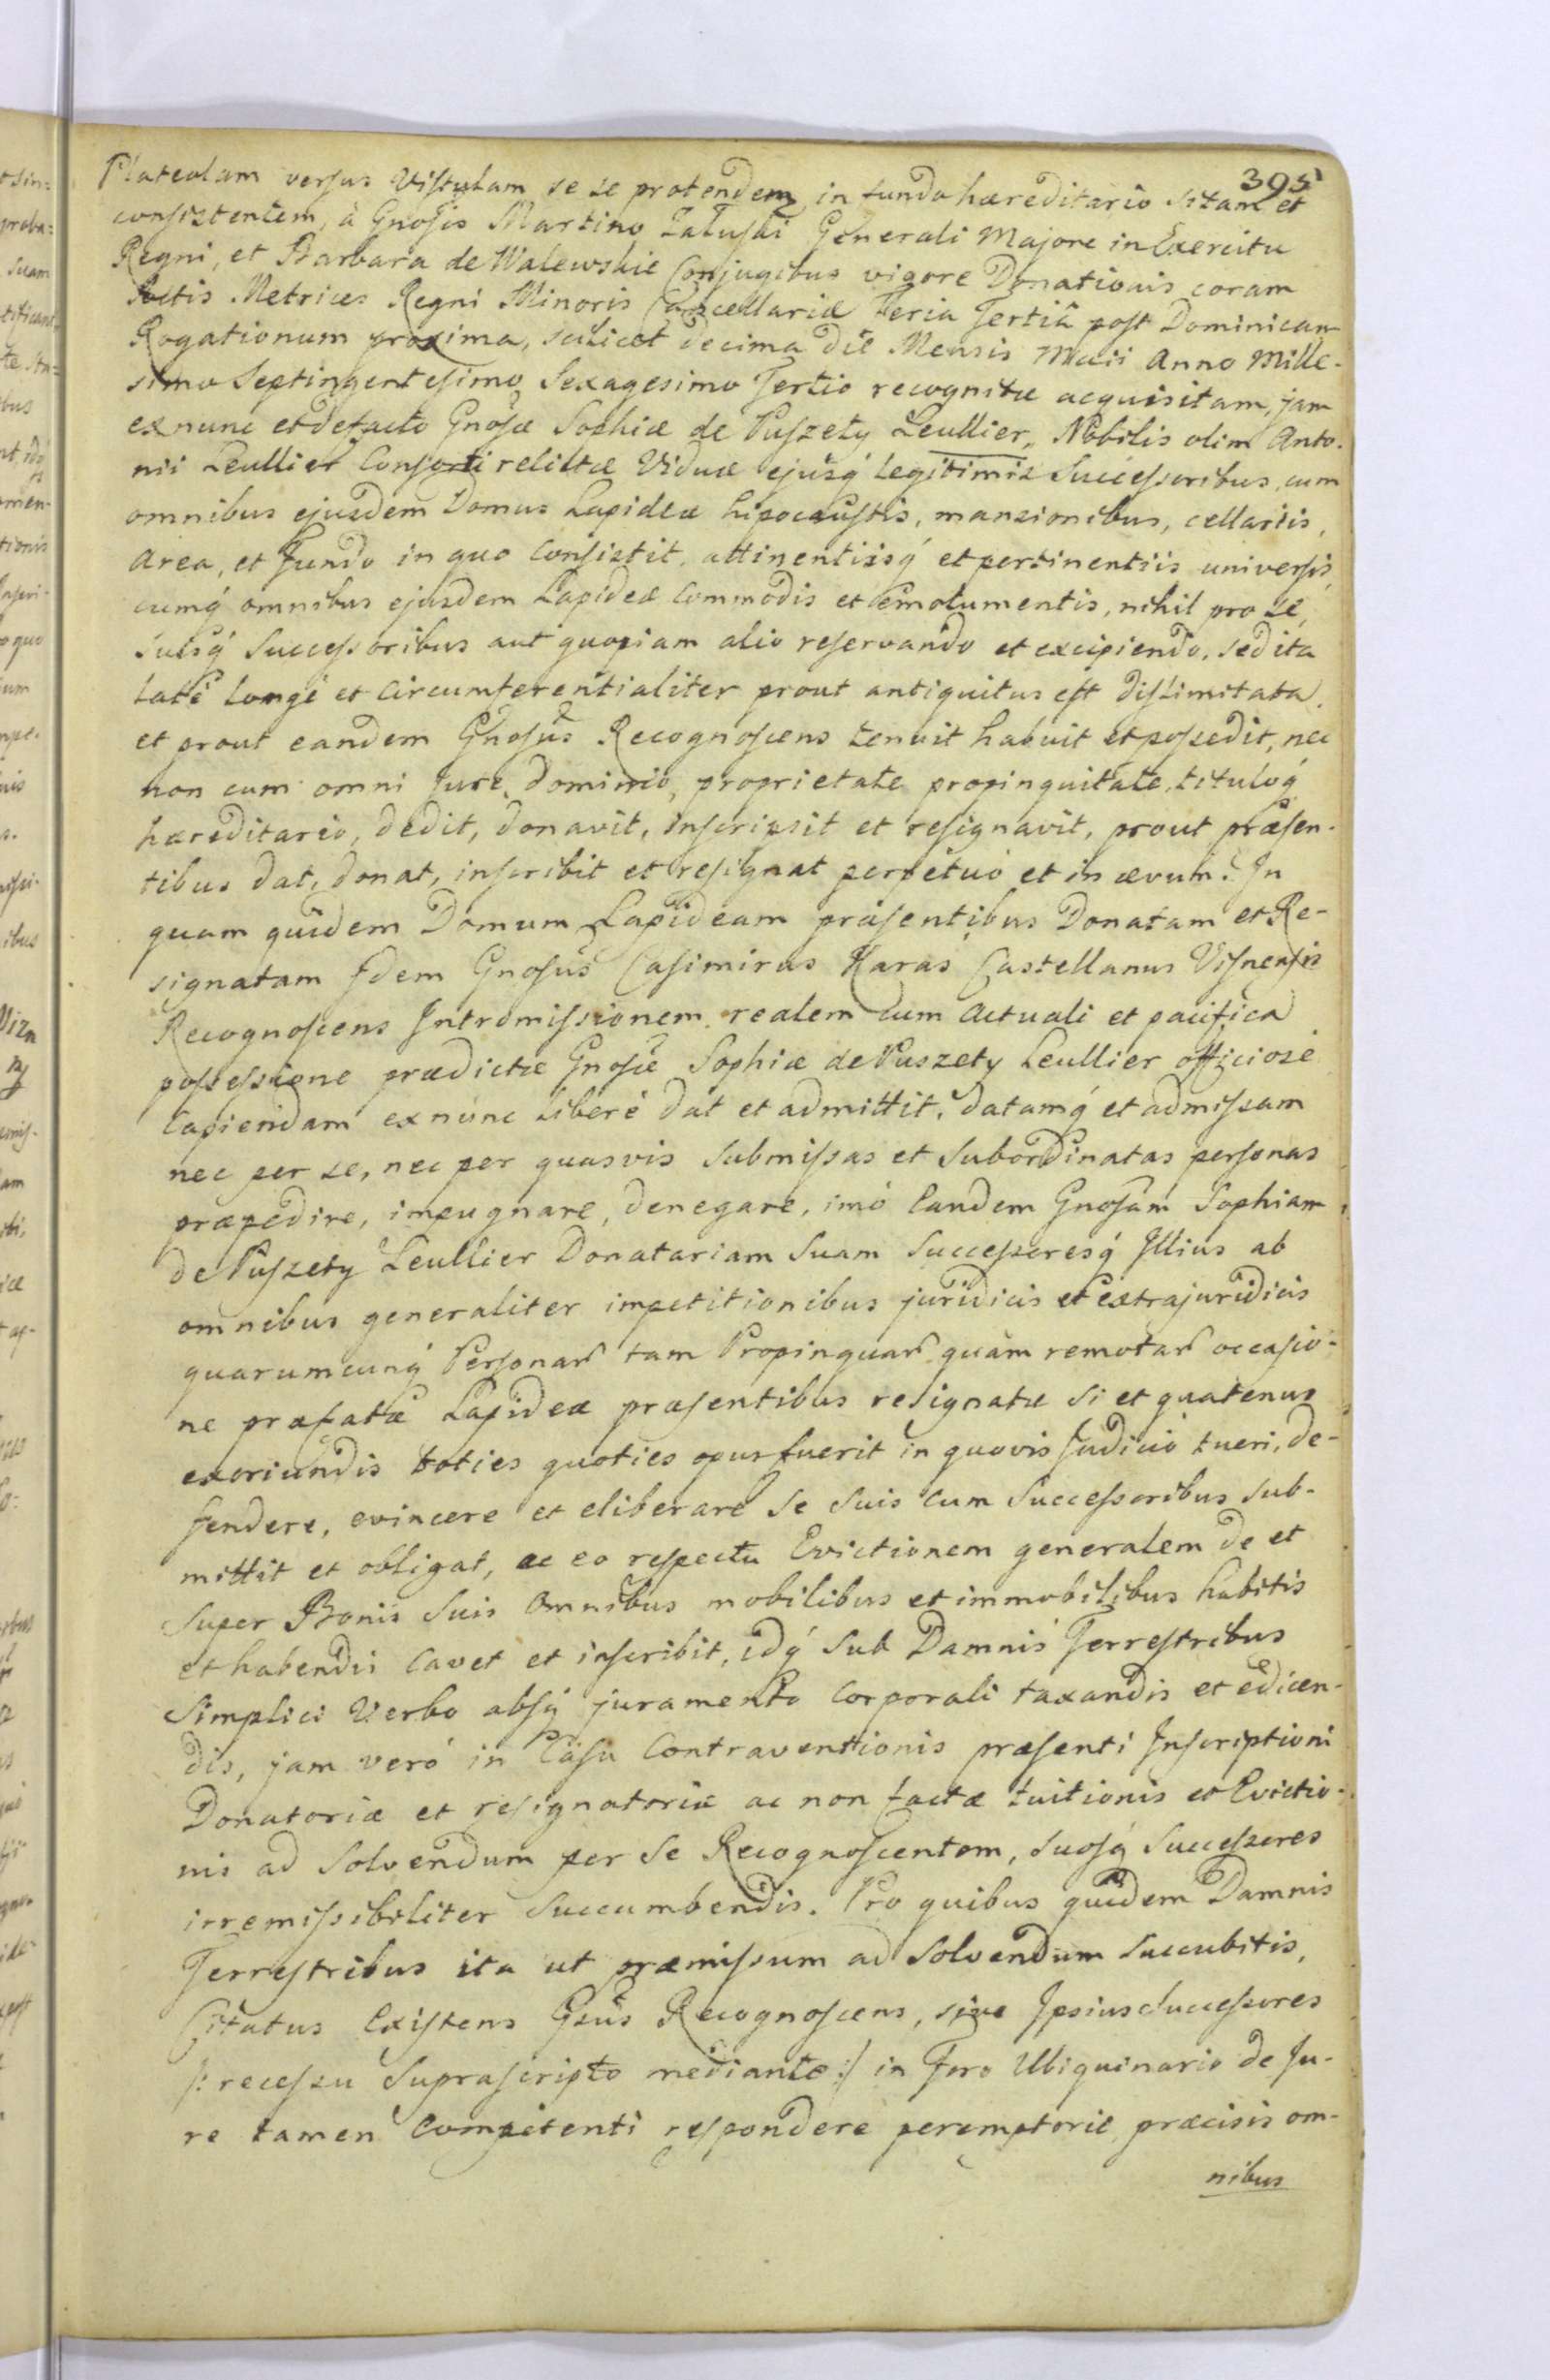 395
Plateolam versus Vistulam se se protendem, in fundo hæreditario sitam et
consistentem, à Gnosis Martino Załuski Generali Majore in Exercitu
Regni, et Barbara de Walewskie Conjugibus vigore Donationis coram
Actis Metrices Regni Minoris Cancellariæ Feria Tertiâ post Dominicam
Rogationum proxima, scilicet decima die Mensis Maii Anno Mille-
simo Septingentesimo Sexagesimo Tertio recognitæ acquisitam, jam
ex nunc et de facto Gnosæ Sophiæ de Puszety Leullier, Nobilis olim Anto-
nii Leullier Consorti relictæ Viduæ ejusq́ legitimis Successoribus, cum
omnibus ejusdem Domus Lapideæ hipocaustis, mansionibus, cellariis,
area, et Fundo in quo Consistit, attinentiisq́ et pertinentiis universis,
cumq́ omnibus ejusdem Lapideæ Commodis et emolumentis, nihil pro se,
suisq́ Successoribus aut quopiam alio reservando et excipiendo, sed ita
latè longè et circumferentialiter prout antiquitus est dislimitata,
et prout eandem Gnosus Recognoscens tenuit habuit et possedit, nec
non cum omni Jure, dominio, proprietate propinquitate, tituloq́
hæreditario, dedit, donavit, inscripsit et resignavit, prout præsen-
tibus dat, donat, inscribit et resignat perpetuò et in ævum. In
quam quidem Domum Lapideam præsentibus Donatam et Re-
signatam Idem Gnosus Casimirus Karas Castellanus Visnensis
Recognoscens Intromissionem realem cum actuali et pacifica
possessione prædictæ Gnosæ Sophiæ de Puszety Leullier officiosè
Capiendam ex nunc liberè dat et admittit, datamq́ et admissam
nec per se, nec per quasvis submissas et subordinatas personas
præpedire, impugnare, denegare, imò Eandem Gnosam Sophiam
de Puszety Leullier Donatariam Suam Successoresq́ Illius ab
omnibus generaliter impetitionibus juridicis et extrajuridicis
quarumcunq́ Personar tam Propinquar quàm remotar occasio-
ne præfatæ Lapideæ præsentibus resignatæ si et quatenus
exoriundis toties quoties opus fuerit in quovis Judicio tueri, de-
fendere, evincere et eliberare se suis cum Successoribus sub-
mittit et obligat, ac eo respectu Evictionem generalem de et
super Bonis Suis Omnibus mobilibus et immobilibus habitis
et habendis Cavet et inscribit, idq́ Sub Damnis Terrestribus
Simplici Verbo absq́ juramento Corporali taxandis et edicen-
dis, jam verò in Casu Contraventionis præsenti Inscriptioni
Donatoriæ et resignatoriæ ac non factæ tuitionis et Evictio-
nis ad Solvendum per Se Recognoscentem, suosq́ Successores
irremissibiliter Succumbendis. Pro quibus quidem Damnis
Terrestribus ita ut præmissum ad Solvendum Succubitis,
Citatus Existens Gsus Recognoscens, sive Ipsius Successores
/: recessu Suprascripto mediante :/ in Foro Ubiquinario de Ju-
re tamen Competenti respondere peremptoriè, præcisis om-
nibus